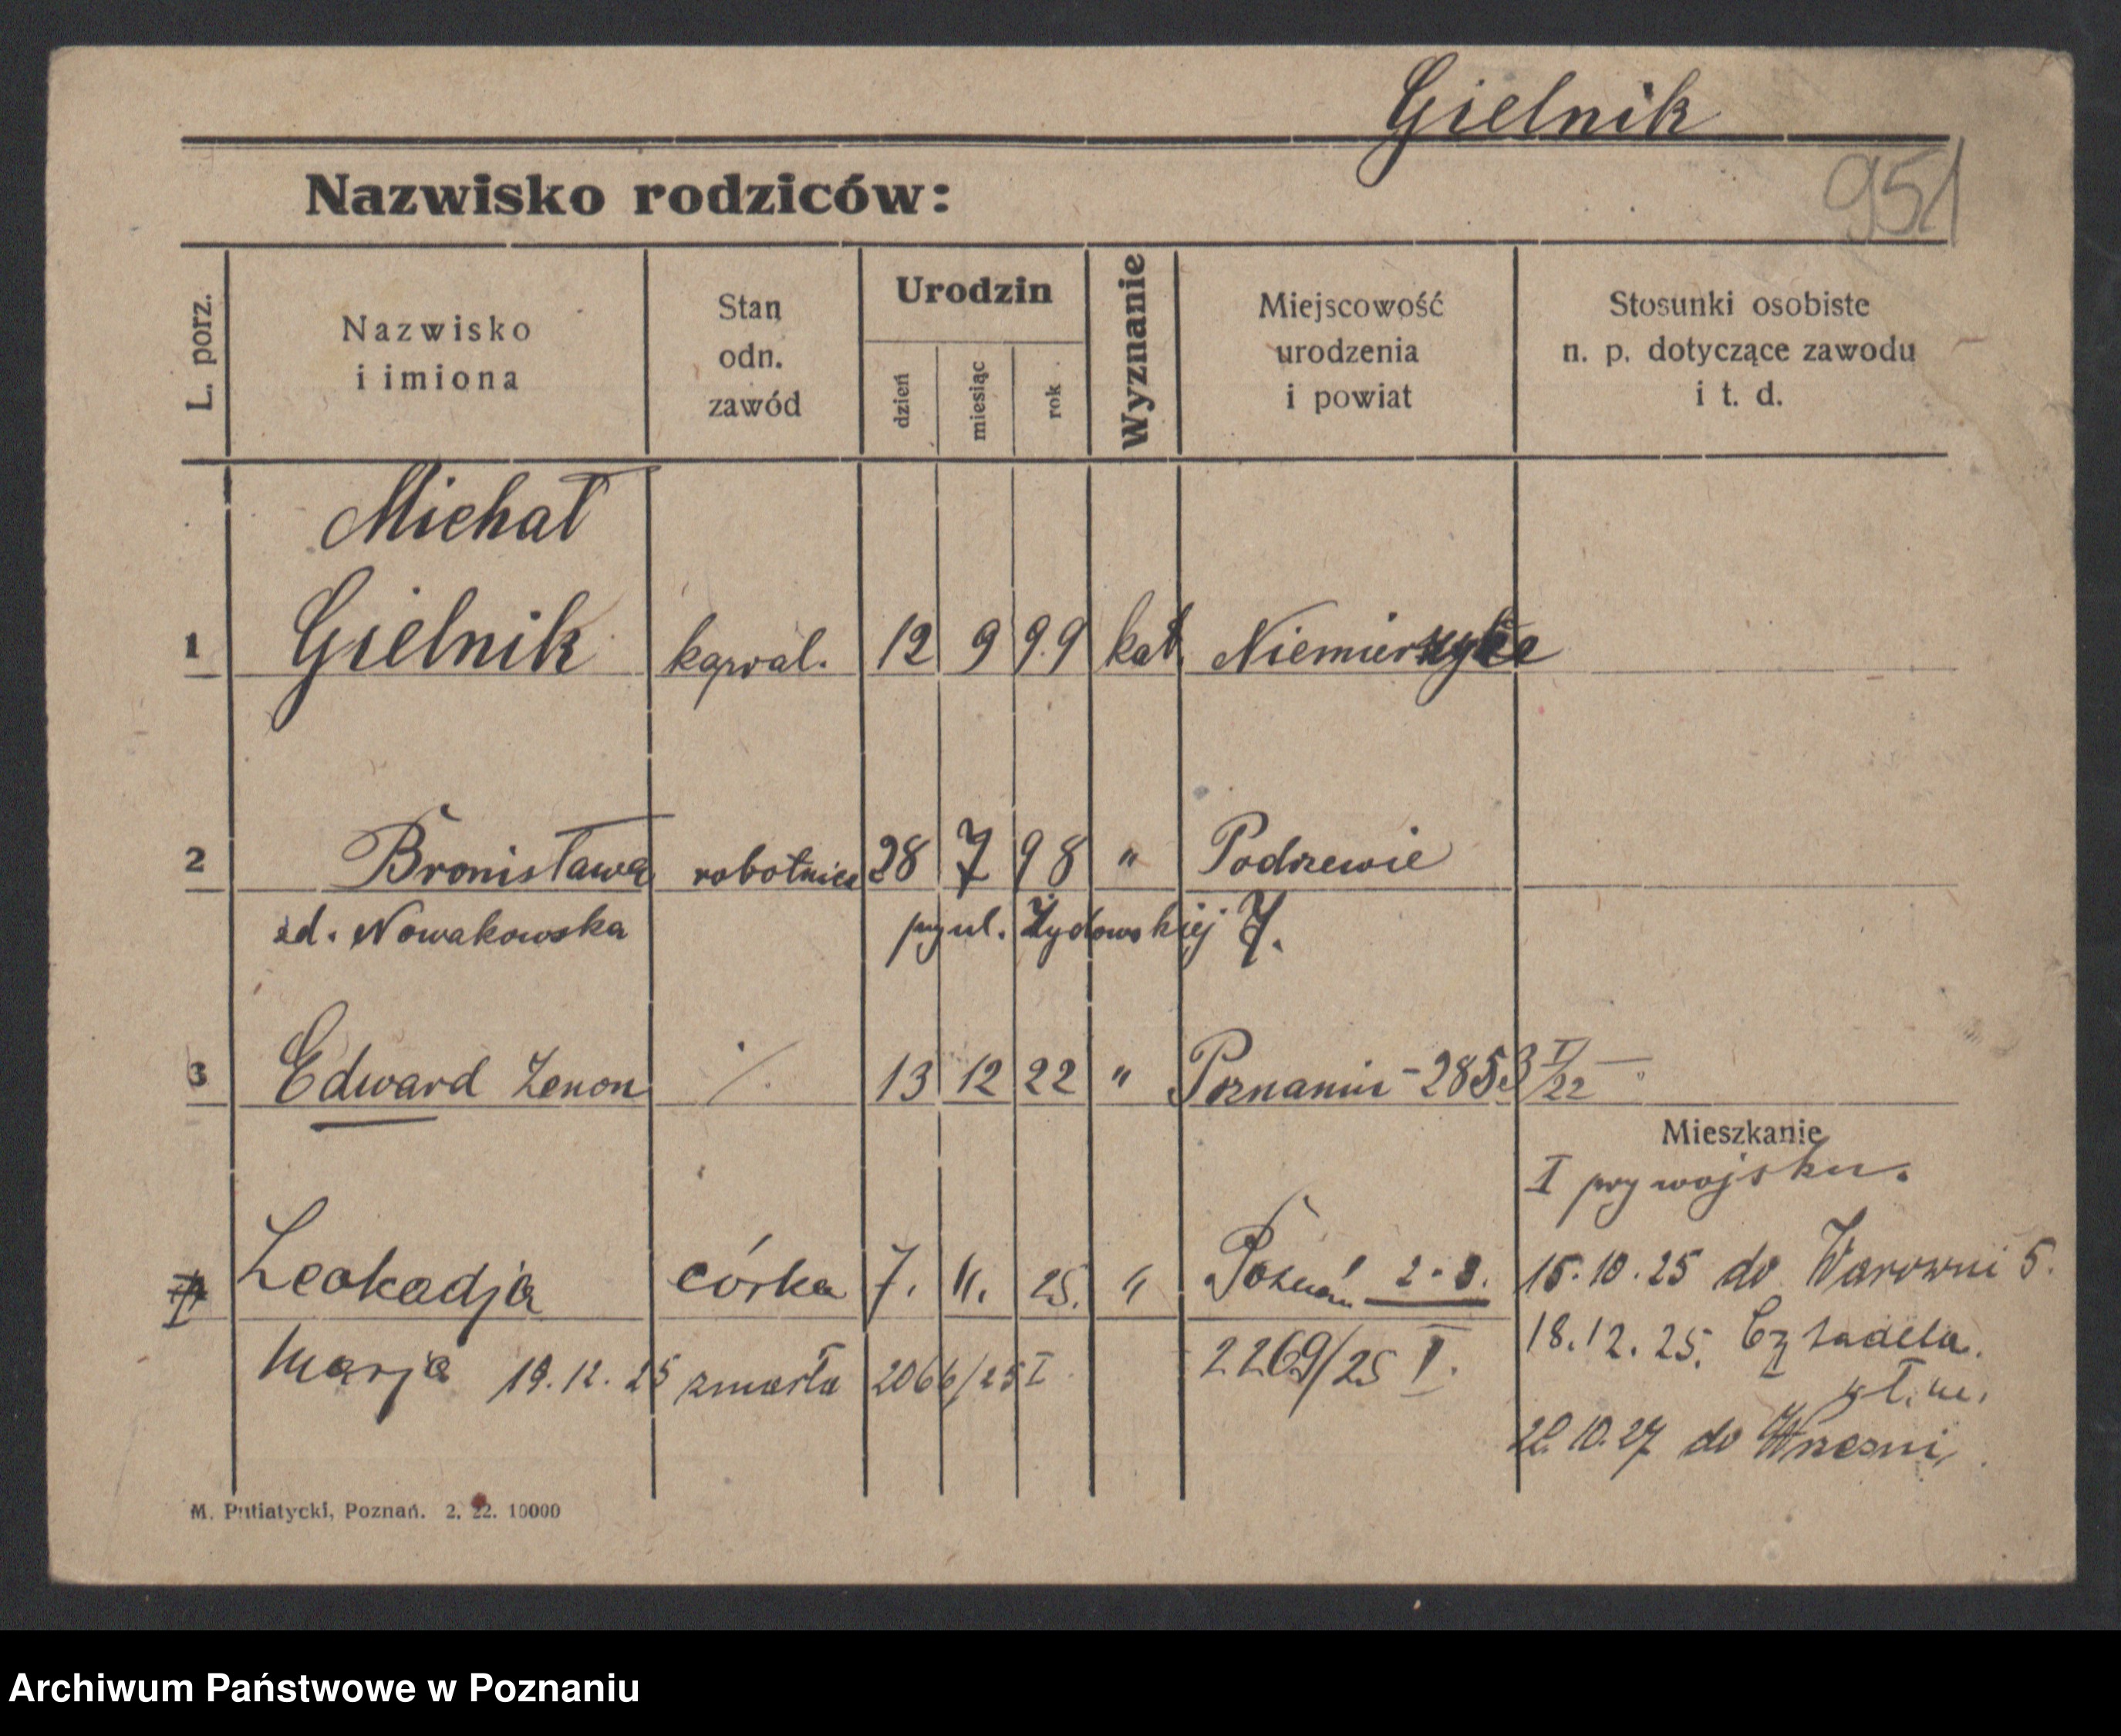 Gielnik
951
Nazwisko rodziców:
L. porz.
Nazwisko
i imiona
Stan
odn.
zawód
Urodzin
dzień
miesiąc
rok
Wyznanie
Miejscowość
urodzenia
i powiat
Stosunki osobiste
n. p. dotyczące zawodu
i t. d.
Michał
1 Gielnik 12 9 99 kat.
2 Bronisława robotnica 28 7 98 " Podrzewie
zd. Nowakowska przy ul. Żydowskiej 7.
3 Edward Zenon ·/. 13 12 22 " Poznaniu - 2853 I/22 —
Mieszkanie
I przy wojsku.
Leokadja córka 7. 11. 25. " Poznań 2.8. 15.10.25 do Warowni 5.
Marja 19.12.25 zmarła 2066/25 I 2269/25 I. 18.12.25. Cytadela.
10.27 do Wrześni
M. Putiatycki, Poznań. 2. 22. 10000
Archiwum Państwowe w Poznaniu